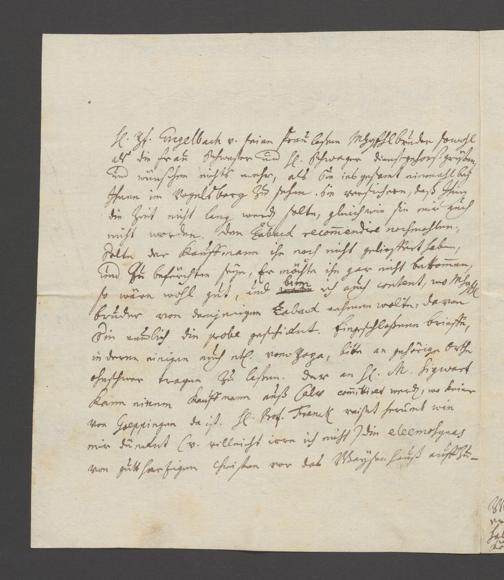 H. Pf. Engelbach v. seine Frau lassen
als die Frau Schwester und H. Schwager
und wünschen nichts mehr, als Sie insgesamt einmahl bey
Ihnen im Vogelsberg zu sehen. Sie versichern, daß Ihnen
die Zeit nicht lang werden solte, gleichwie sie mir auch
nicht worden. Den Taback recommendire nochmahlen,
solte der Kauffmann ihn noch nicht geliefert haben,
und zu befürchten seyn, Er möchte ihn gar nicht bekommen,
so wäre wohl gut, und bin ich auch content, wo
brüder von demjenigen Taback nehmen wolten, davon
Sie neulich die probe geschickt. Eingeschlossene brieffe,
in deren einigen auch etl. vom Papa, bitte an gehörige Orte
ohnschwer tragen zu lassen. Der an H. M. Sigwart
kann einem Kauffmann auß Calw committirt werden, wo keiner
von Goeppingen da ist. H. Prof. Franck reiset herum wie
mir däucht (v. villeicht irre ich nicht) die eleemosynas
von gutherzigen Christen vor das Waysenhauß